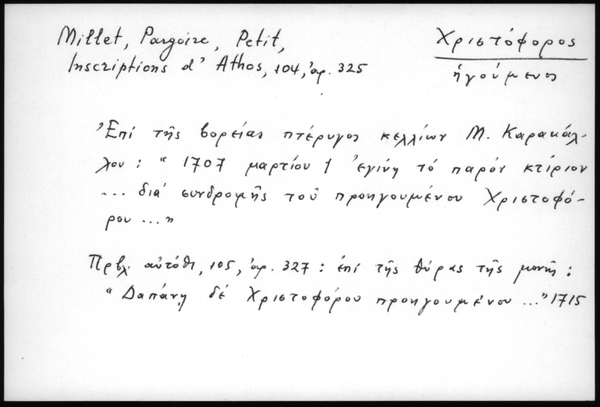 Millet, Pargoire, Petit,
Inscriptions d' Athos, 104, ἀρ. 325
Χριστόφορος
ἡγούμενος
Ἐπί τῆς βορείας πτέρυγος κελλίων Μ. Καρακάλ-
λου : " 1707 μαρτίου 1 ἐγίνη τό παρόν κτίριον
... διά συνδρομῆς τοῦ προηγουμένου Χριστοφό-
ρου ... "
Πρβλ. αὐτόθι, 105, ἀρ. 327 : ἐπί τῆς θύρας τῆς μονῆς :
" Δαπάνῃ δέ Χριστοφόρου προηγουμένου ... " 1715